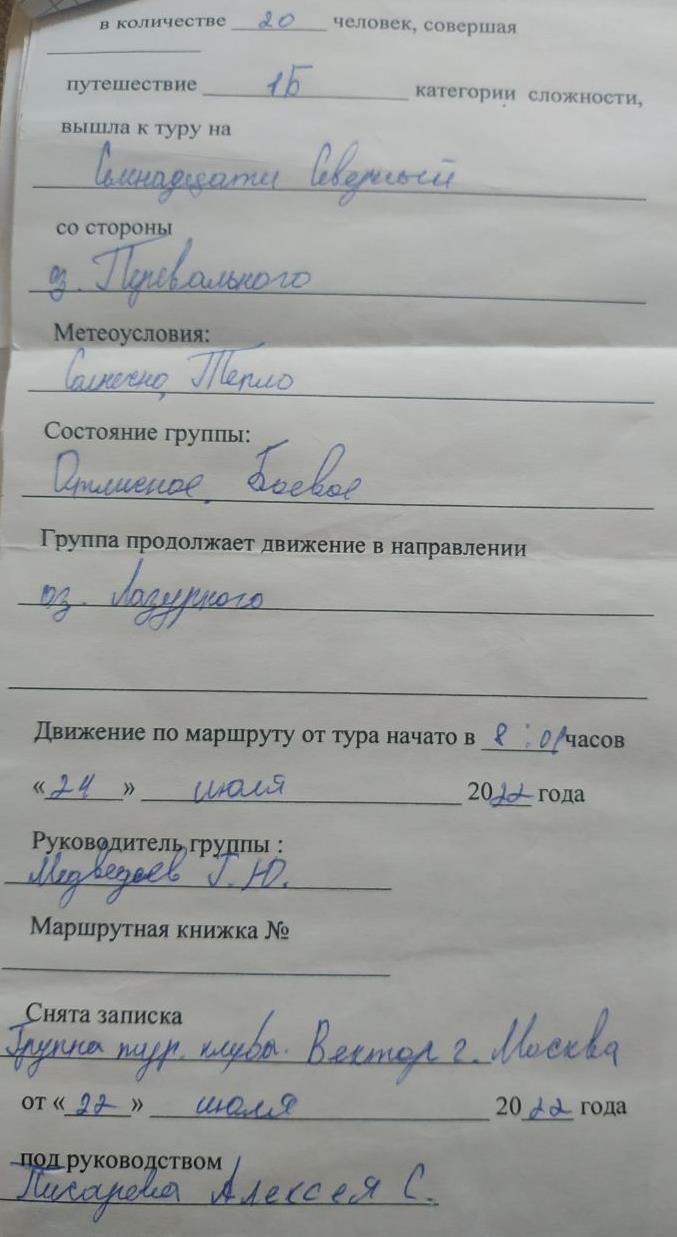 в количестве 20 человек, совершая
путешествие 1Б категории сложности,
вышла к туру на
Семнадцати Северный
со стороны
оз. Перевального
Метеоусловия:
Солнечно, Тепло
Состояние группы:
Отличное. Боевое
Группа продолжает движение в направлении
оз. Лазурного
Движение по маршруту от тура начато в 8:01 часов
«24» июля 2022 года
Руководитель группы :
Медведев Г.Ю.
Маршрутная книжка №
Снята записка
Группа тур. клубы. Вектор г. Москва
от «22» июля 2022 года
под руководством
Писарева Алексея С.